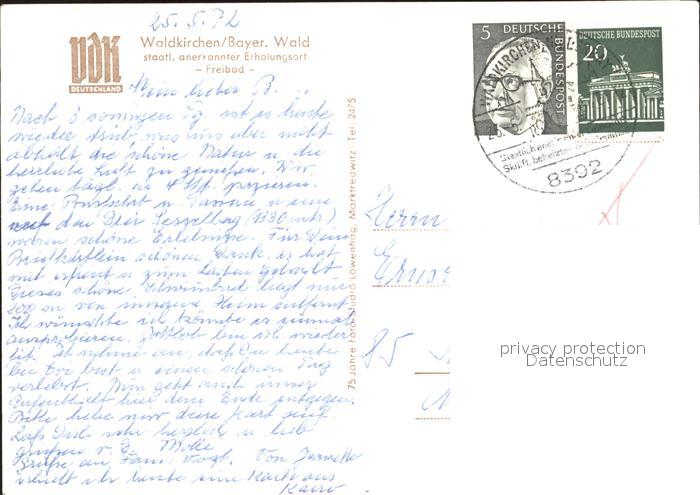 25.5.72
VDK
DEUTSCHLAND
Waldkirchen/Bayer. Wald
staatl. anerkannter Erholungsort
– Freibad –
5
DEUTSCHE
BUNDESPOST
DEUTSCHE BUNDESPOST
20
8392
Mein lieber B...
Nach 3 sonnigen Tg. ist es heute
wieder trüb, was uns aber nicht
abhält die schöne Natur u. die
herrliche Luft zu genießen. Wir
gehen tägl. ca 4 Std. spazieren.
Eine nach Passau u. eine
auf den Drei Sesselberg (1330 mtr.)
waren schöne Erlebnisse. Für Dein
Briefkärtlein schönen Dank. es hat
mich erfreut u. zum Lachen gebracht
Dieses schöne Schwimmbad liegt nur
800 m von unserem Heim entfernt.
Ich wünschte ich könnte es einmal
ausprobieren. Gottlob bin ich wieder
fit. Ich nehme an, daß Du heute
bei Eva bist u. einen schönen Tag
verlebst. Nun geht auch unser
Aufenthalt hier dem Ende entgegen.
Bitte hebe mir diese Karte auf.
Laß Dich sehr herzlich u. lieb
grüßen v. D.
Grüße an Fam. Vogt. Von
erhielt ich heute eine Karte aus
Kairo
75 Jahre Foto-Studio Löwenhag, Marktredwitz Tel. 2475
Herrn
85
privacy protection
Datenschutz